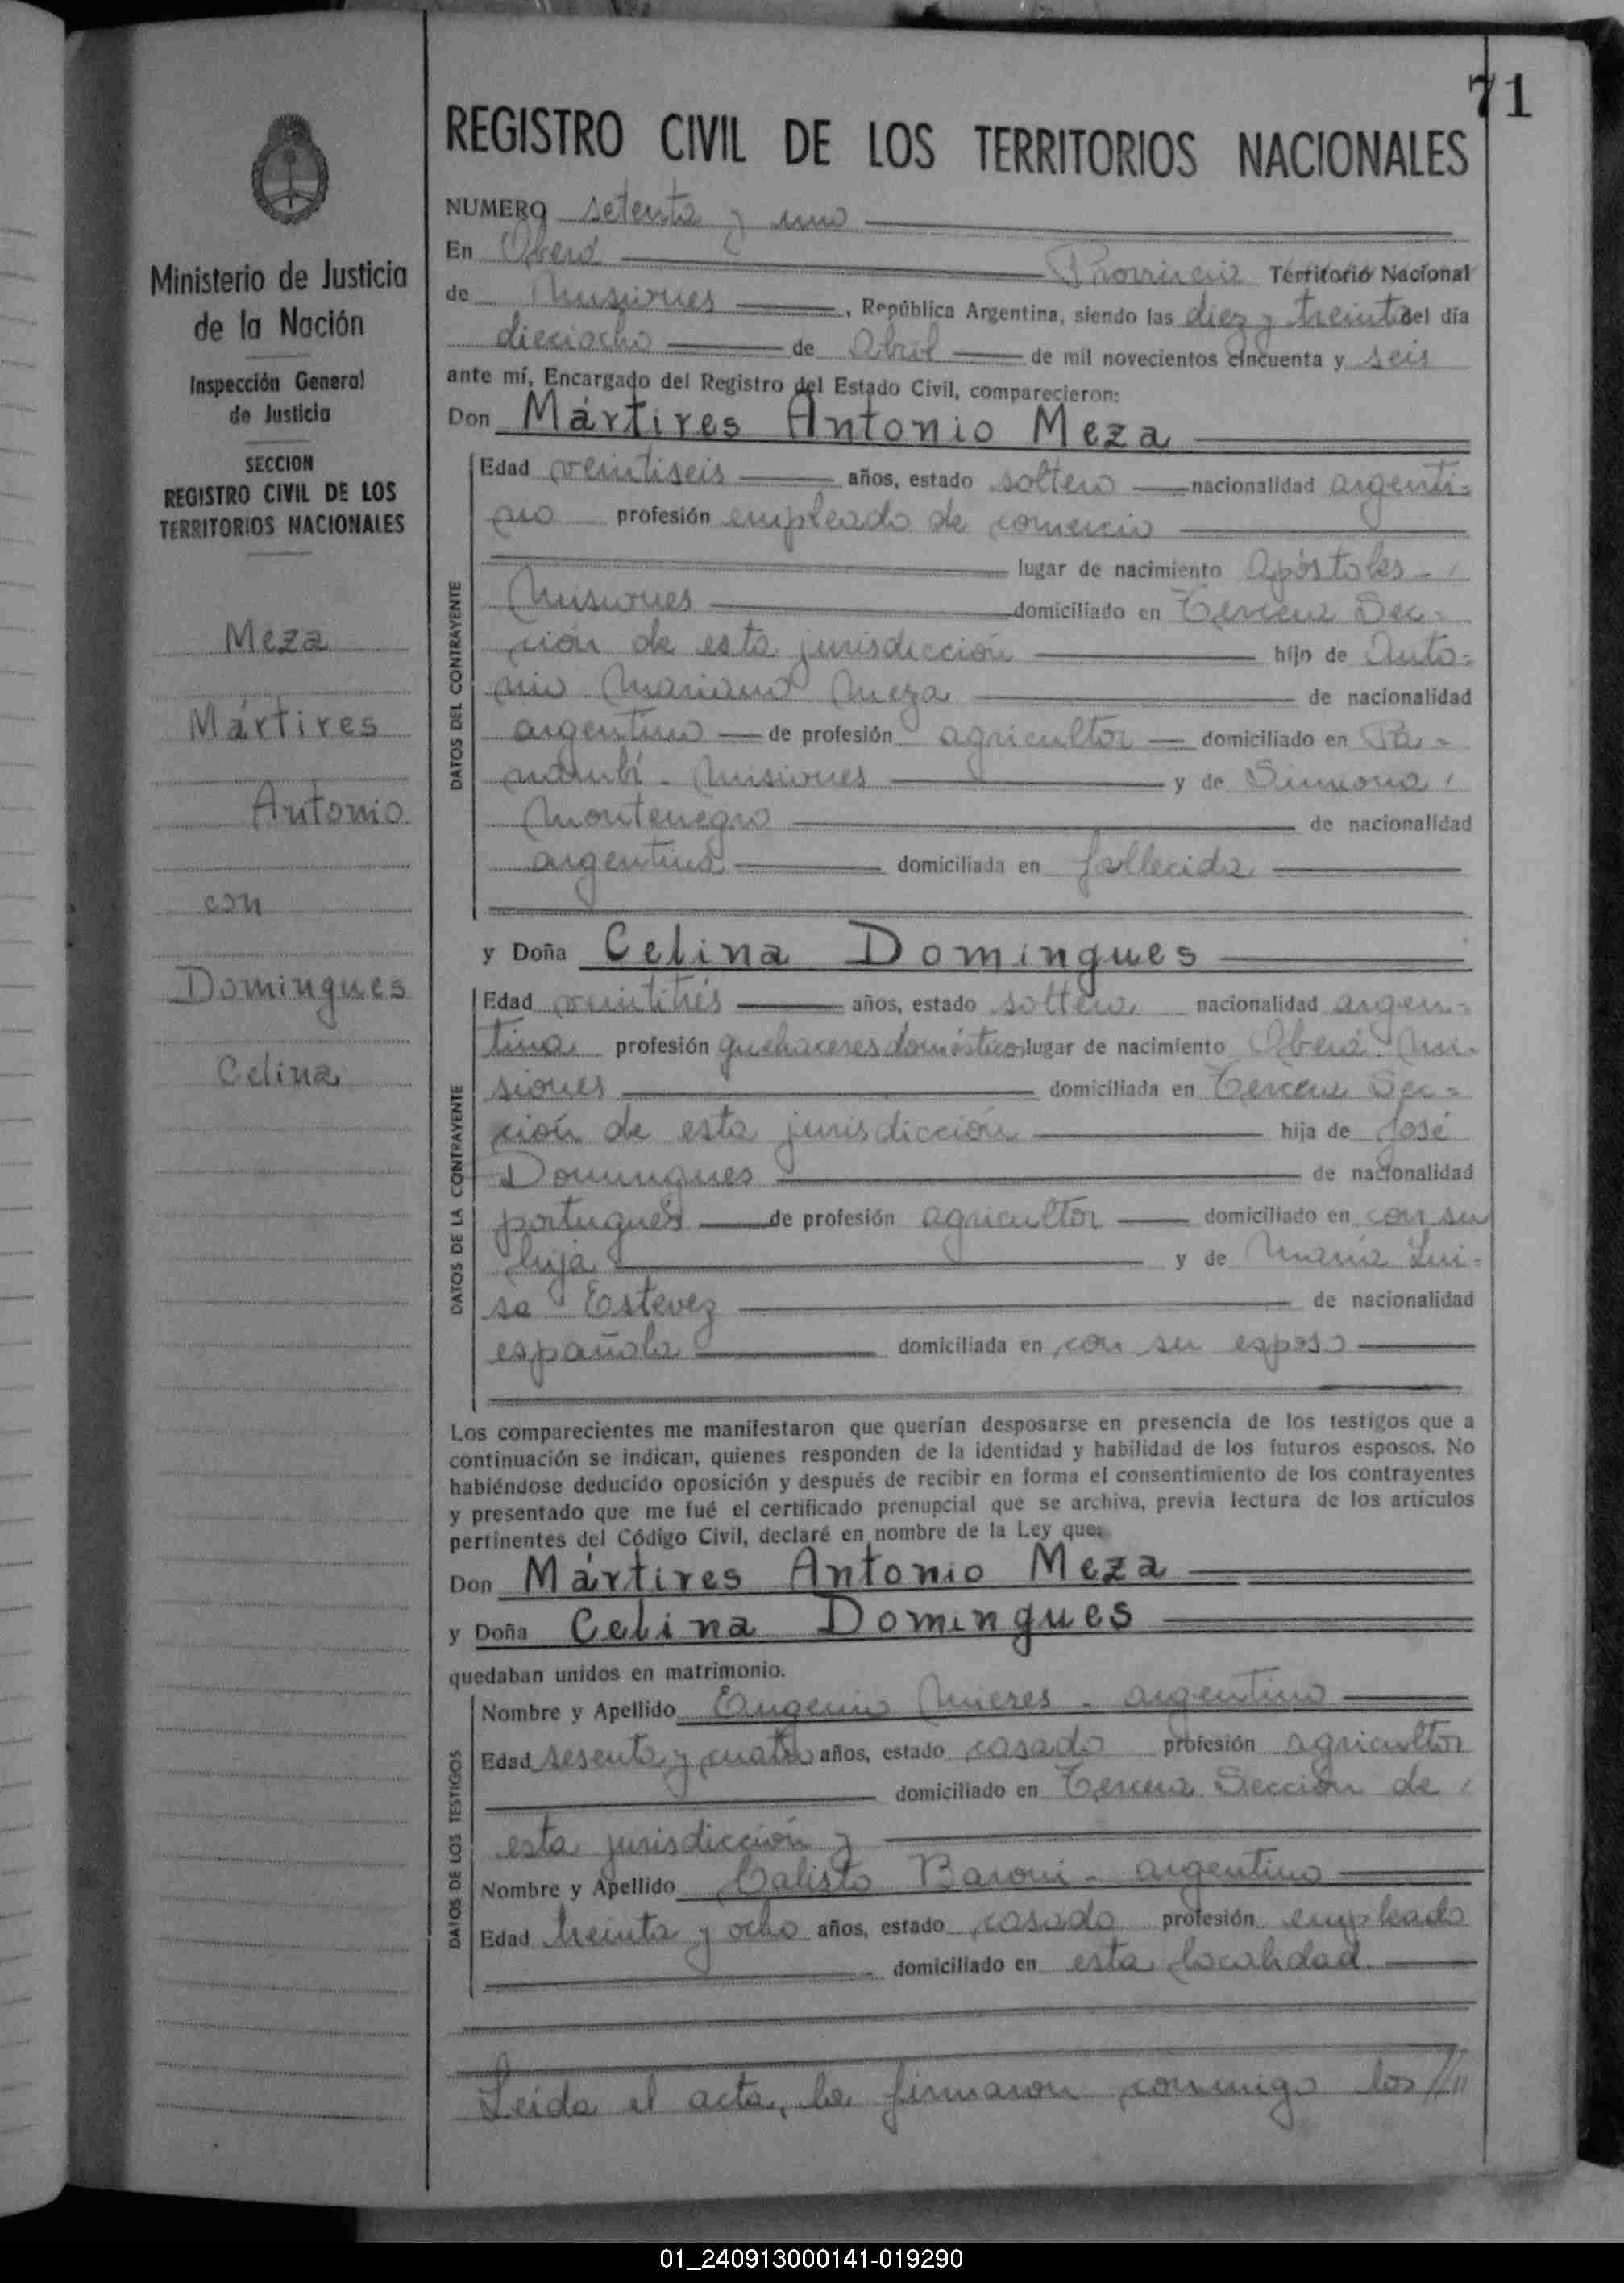 71
REGISTRO CIVIL DE LOS TERRITORIOS NACIONALES
Ministerio de Justicia
de la Nación
Inspección General
de Justicia
SECCION
REGISTRO CIVIL DE LOS
TERRITORIOS NACIONALES
Meza
Mártires
Antonio
con
Domingues
Celina
NUMERO setenta y uno
En Oberá Provincia Territorio Nacional
de Misiones, República Argentina, siendo las diez y treinta del día
dieciocho de Abril de mil novecientos cincuenta y seis
ante mí, Encargado del Registro del Estado Civil, comparecieron:
Don Mártires Antonio Meza
DATOS DEL CONTRAYENTE
Edad veintiseis años, estado soltero nacionalidad argenti-
no profesión empleado de comercio
lugar de nacimiento Apóstoles -
Misiones domiciliado en Tercera Sec-
ción de esta jurisdicción hijo de Anto-
nio Mariano Meza de nacionalidad
argentino de profesión agricultor domiciliado en Pa-
nambí - Misiones y de Simona
Montenegro de nacionalidad
argentina domiciliada en fallecida
y Doña Celina Domingues
DATOS DE LA CONTRAYENTE
Edad veintitrés años, estado soltera nacionalidad argen-
tina profesión quehaceres domésticos lugar de nacimiento Oberá Mi-
siones domiciliada en Tercera Sec-
ción de esta jurisdicción hija de José
Domingues de nacionalidad
portugués de profesión agricultor domiciliado en con su
hija y de María Lui-
sa Estevez de nacionalidad
española domiciliada en con su esposo
Los comparecientes me manifestaron que querían desposarse en presencia de los testigos que a
continuación se indican, quienes responden de la identidad y habilidad de los futuros esposos. No
habiéndose deducido oposición y después de recibir en forma el consentimiento de los contrayentes
y presentado que me fué el certificado prenupcial que se archiva, previa lectura de los artículos
pertinentes del Código Civil, declaré en nombre de la Ley que:
Don Mártires Antonio Meza
y Doña Celina Domingues
quedaban unidos en matrimonio.
DATOS DE LOS TESTIGOS
Nombre y Apellido Eugenio Mieres - argentino
Edad sesenta y cuatro años, estado casado profesión agricultor
domiciliado en Tercera Sección de
esta jurisdicción y
Nombre y Apellido Calisto Baroni - argentino
Edad treinta y ocho años, estado casado profesión empleado
domiciliado en esta localidad.
Leída el acta, la firmaron conmigo los ///
01_240913000141-019290